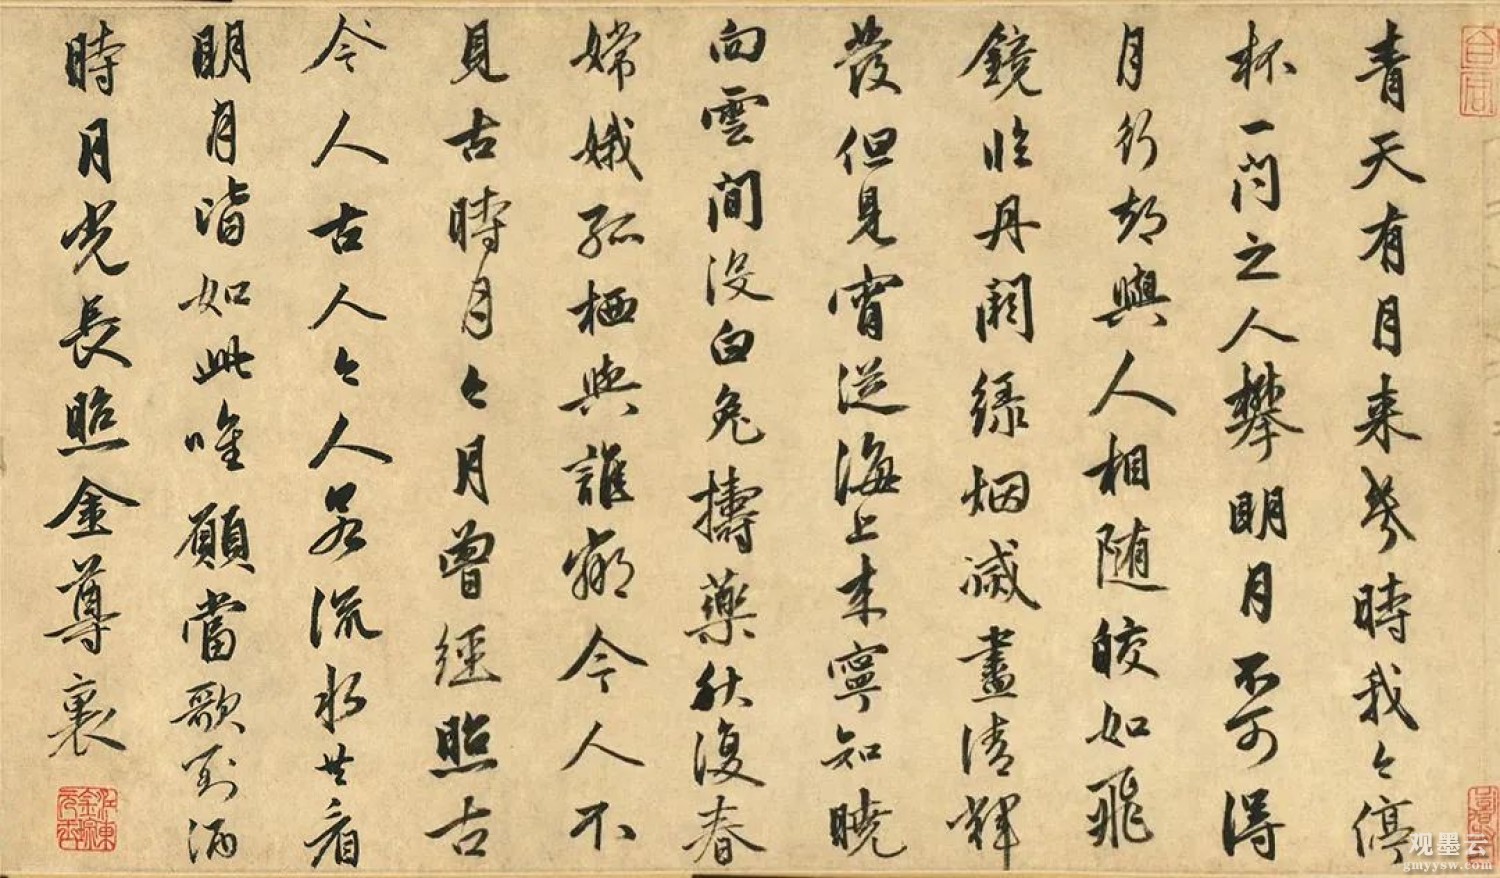 青天有月来幾時我今停
杯一問之人攀明月不可得
月行却與人相随皎如飛
鏡臨丹闕緑烟滅盡清輝
發但見宵從海上来寧知曉
向雲間没白兔擣藥秋復春
嫦娥孤栖與誰鄰今人不
見古時月今月曾經照古
今人古人今人若流水共看
明月皆如此唯願當歌對酒
時月光長照金尊裏
江東金琮元玉
观墨云
gmyysw.com